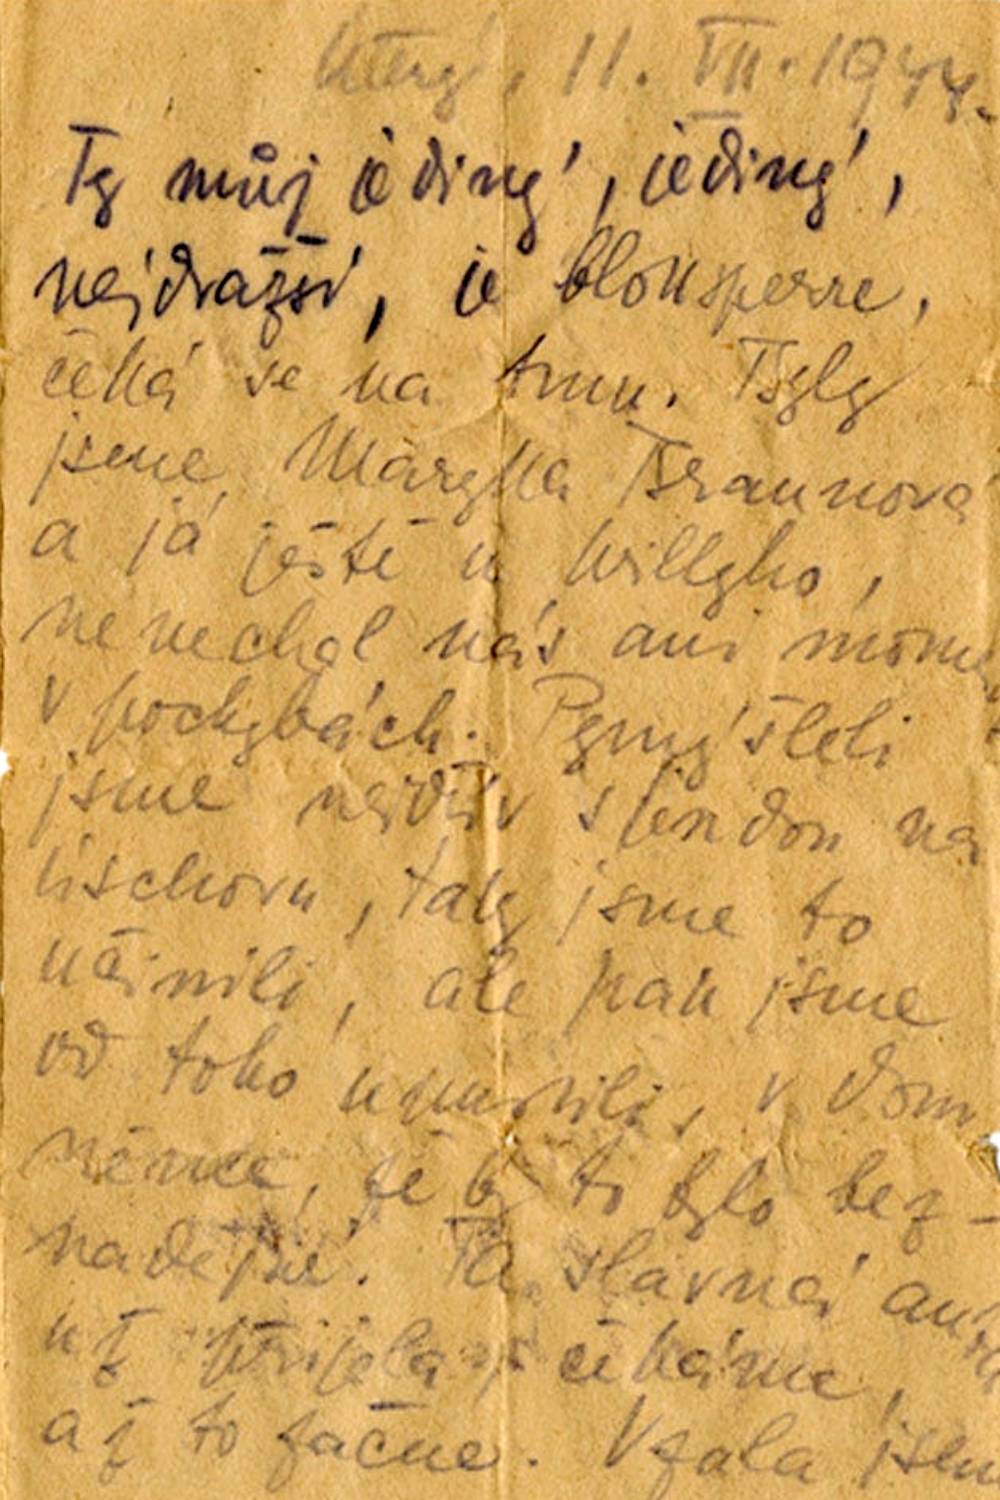 Úterý, 11. VII. 1944.
Ty můj jediný, jediný,
nejdražší, je bloksperre,
čeká se na tmu. Byly
jsme Maryka Braunová
a já ještě u Willyho,
nenechal nás ani mome
v pochybách. Pomýšleli
jsme nejdřív s Jendou na
lischovu, taky jsme to
učinili, ale pak jsme
od toho upustili, v dom
něnce, že by to bylo bez-
nadějné. Ta slavná auta
už přijela, čekáme,
až to začne. Vzala jsem